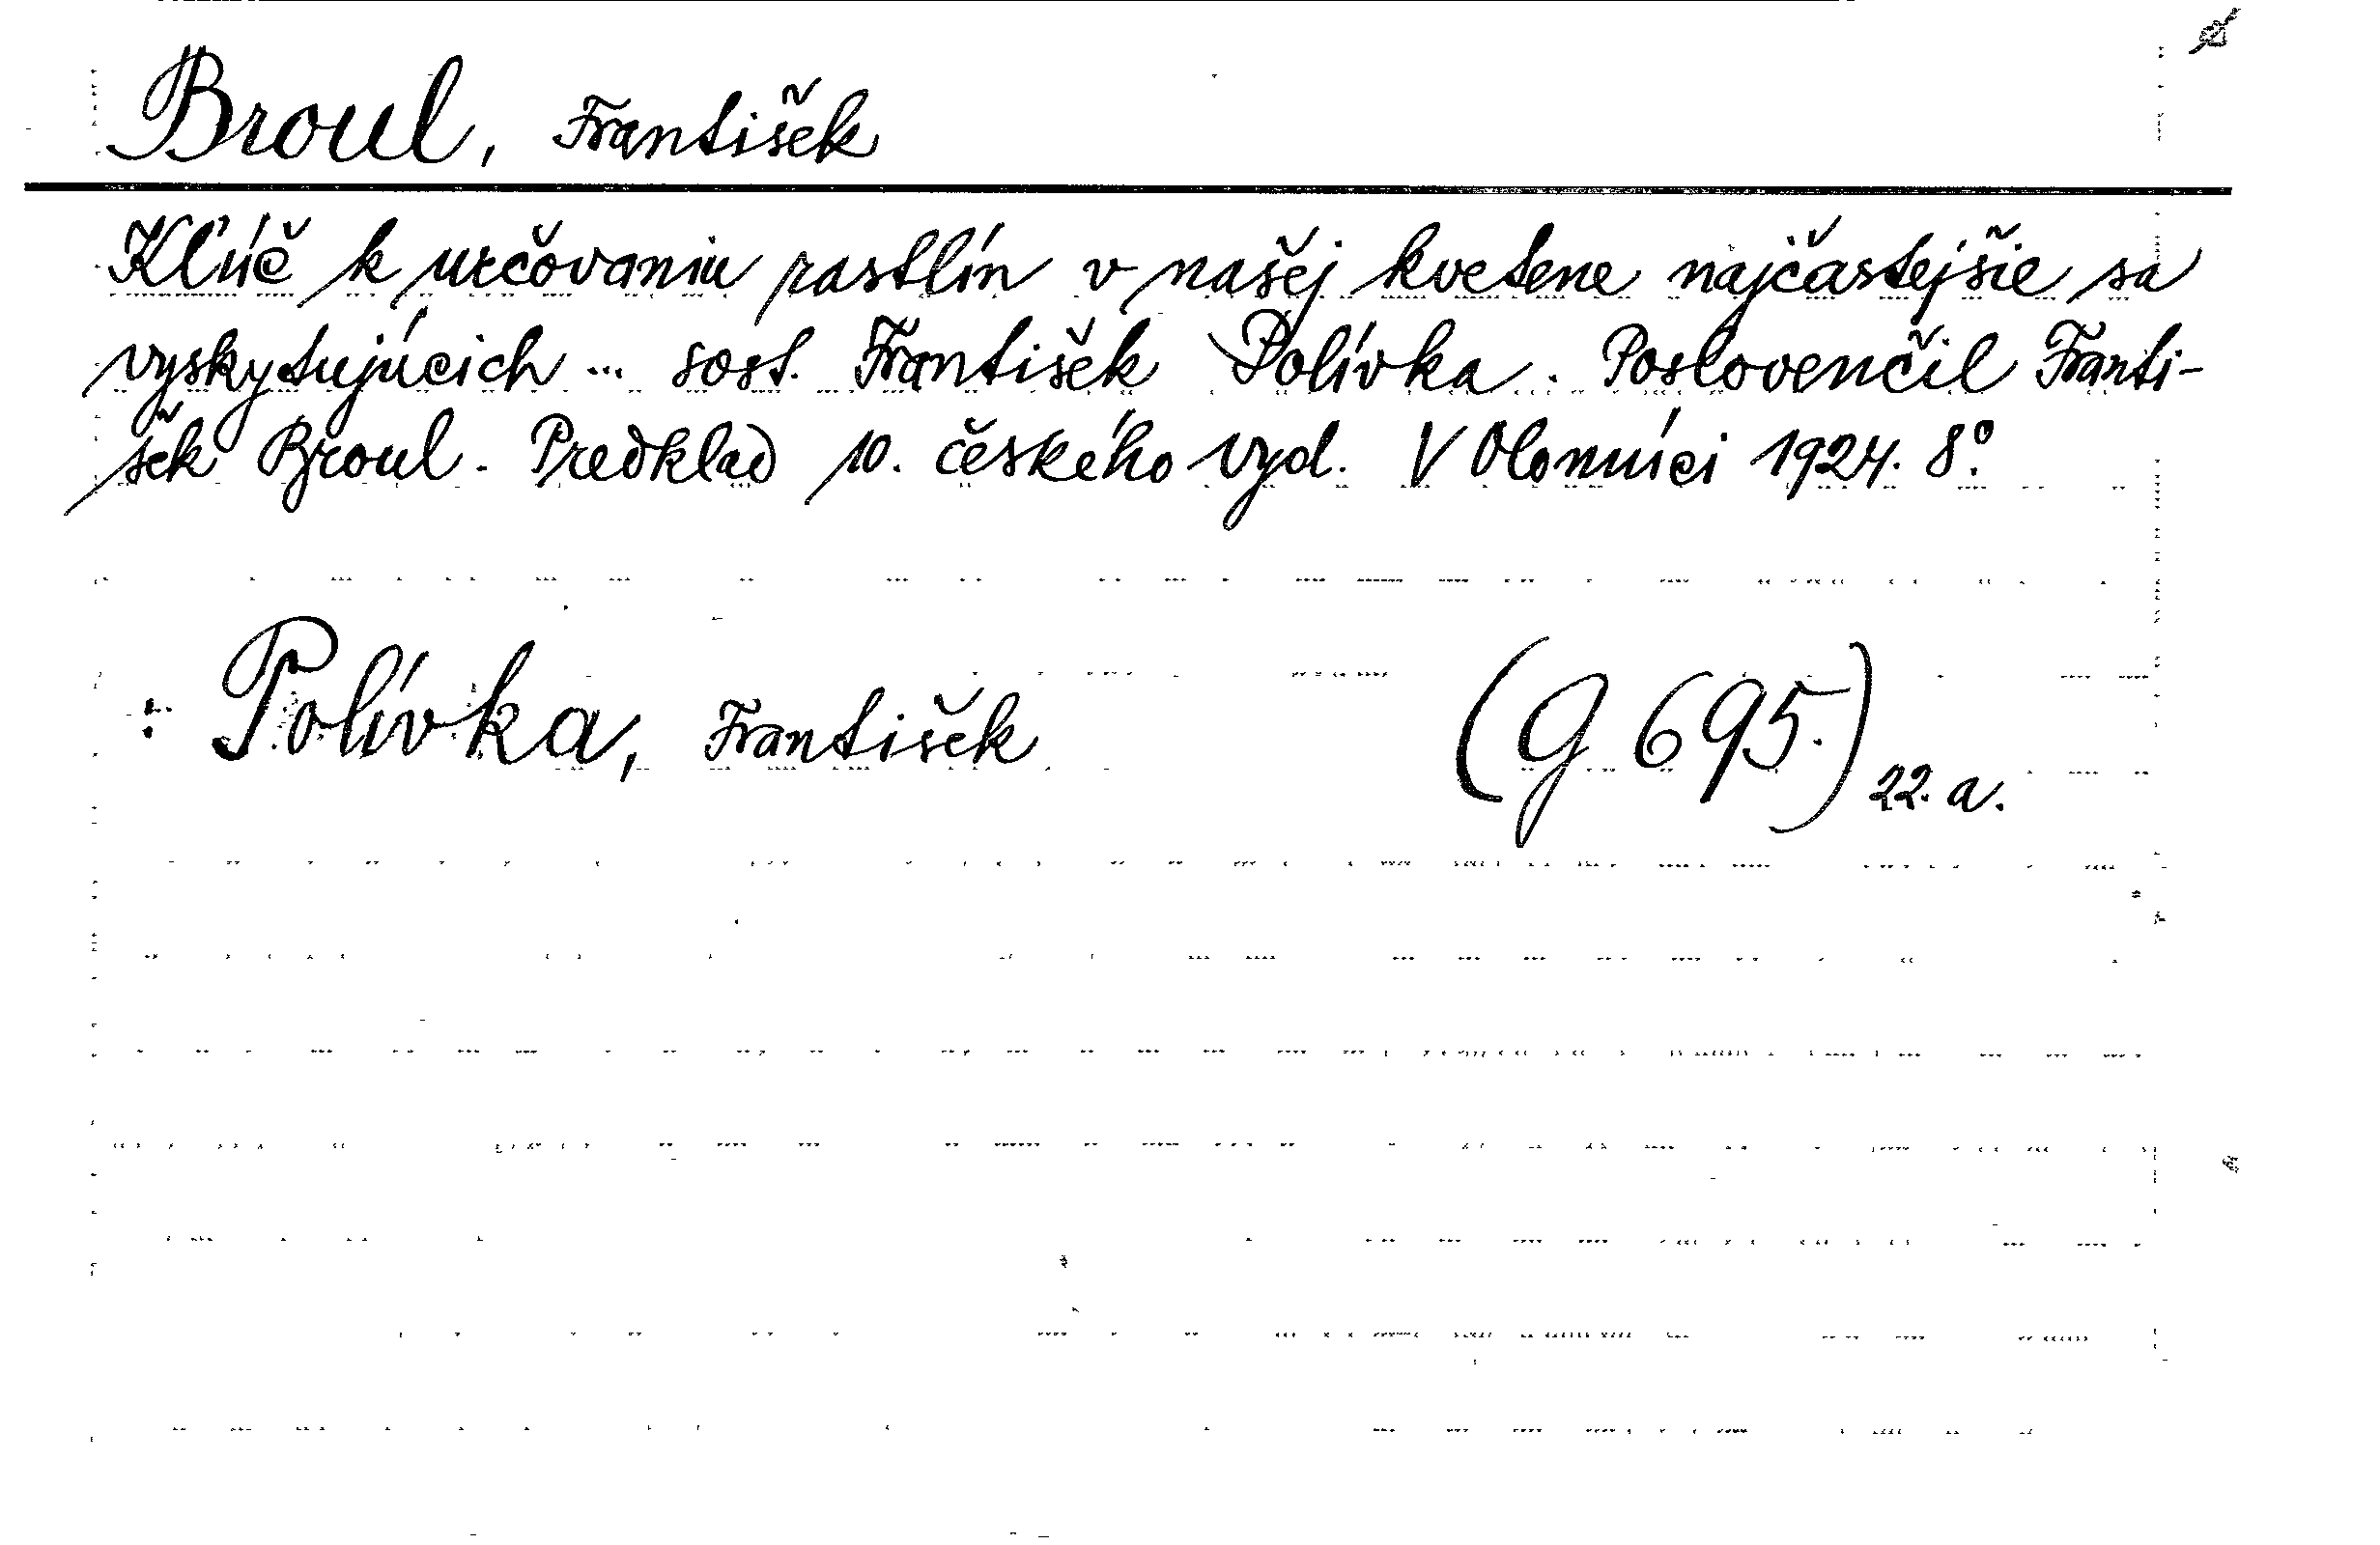 Broul, František
Kľúč k určovaniu rastlín v našej kvetene najčastejšie sa
vyskytujúcich ... sost. František Polívka. Poslovenčil Franti-
šek Broul. Predklad 10. českého vyd. V Olomúci 1924. 8°.
: Polívka, František (G 695.) 22. a.